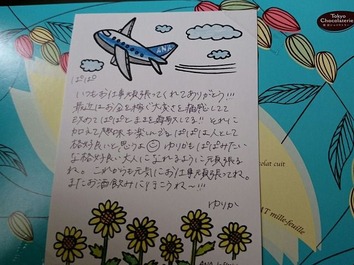 Tokyo
Chocolaterie
ANA
ぱぱ
いつもお仕事頑張ってくれてありがとう!!!
最近はお金を稼ぐ大変さを痛感してて
改めてぱぱとままを尊敬してる!! それに
加えて趣味も楽しんでるぱぱは人として
格好良いと思うよ☺ ゆりもぱぱみたい
な格好良い大人になれるように頑張るね
ね。これからも元気にお仕事頑張ってね。
またお酒飲みに行こうね〜!!!
ゆりか
chocolat cuit
mille-feuille